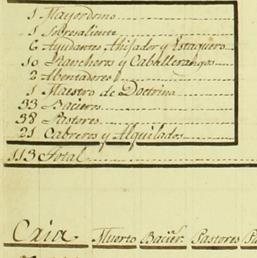 1 Mayordomo
1 Sobresaliente
6 Ayudantes Ahijador y Estaquero
10 Rancheros y Caballerangos
2 Abentadores
1 Maestro de Doctrina
33 Bacieros
38 Pastores
21 Cabreros y Alquilados
113 Total
Cria. Muerto Bacier. Pastores